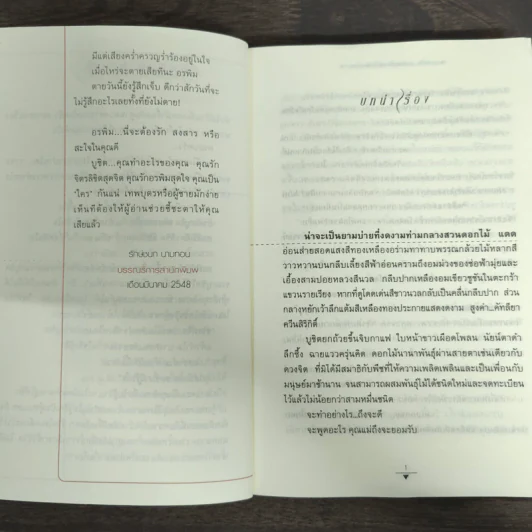 มีแต่เสียงคร่ำครวญร่ำร้องอยู่ในใจ
เมื่อไหร่จะตายเสียทีนะ อรพิม
ตายวันนี้ยังรู้สึกเจ็บ ดีกว่าสักวันที่จะ
ไม่รู้สึกอะไรเลยทั้งที่ยังไม่ตาย!
อรพิม...นี่จะต้องรัก สงสาร หรือ
สะใจในคุณดี
บูชิต...คุณทำอะไรของคุณ คุณรัก
จิตรลิขิตสุดจิต คุณรักอรพิมสุดใจ คุณเป็น
"ใคร" กันแน่ เทพบุตรหรือผู้ชายมักง่าย
เห็นทีต้องให้ผู้อ่านช่วยชี้ชะตาให้คุณ
เสียแล้ว
รักษ์ชนก นามทอน
บรรณาธิการสำนักพิมพ์
เดือนมีนาคม 2548
บทนำเรื่อง
น่าจะเป็นยามบ่ายที่งดงามท่ามกลางสวนดอกไม้ แดด
อ่อนส่ายสอดแสงสีทองเหลืองอร่ามทาทาบพรรณกล้วยไม้หลากสี
วาวหวานปนกลีบเลี้ยงสีฟ้าอ่อนคราม
เอื้องสามปอยหลวงสีนวล กลีบปากเหลืองอมเขียวชูชันในตะกร้า
แขวนรายเรียง
กลางหยักเว้าลึกแต้มสีเหลืองทองประกายแสดงดงาม
ควีนสิริกิติ์
บูชิตยกถ้วยขึ้นจิบกาแฟ ใบหน้าขาวเผือดโพลน นัยน์ตาดำ
ลึกซึ้ง ฉายแววครุ่นคิด ดอกไม้นานาพันธุ์ผ่านสายตาเช่นเดียวกับ
ดวงจิต ที่มิได้มีสมาธิกับพืชที่ให้ความเพลิดเพลินและเป็นเพื่อนกับ
มนุษย์มาช้านาน จนสามารถผสมพันธุ์ไม้ได้ชนิดใหม่และจดทะเบียน
ไว้แล้วไม่น้อยกว่าสามหมื่นชนิด
จะทำอย่างไร...ถึงจะดี
จะพูดอะไร คุณแม่ถึงจะยอมรับ
1